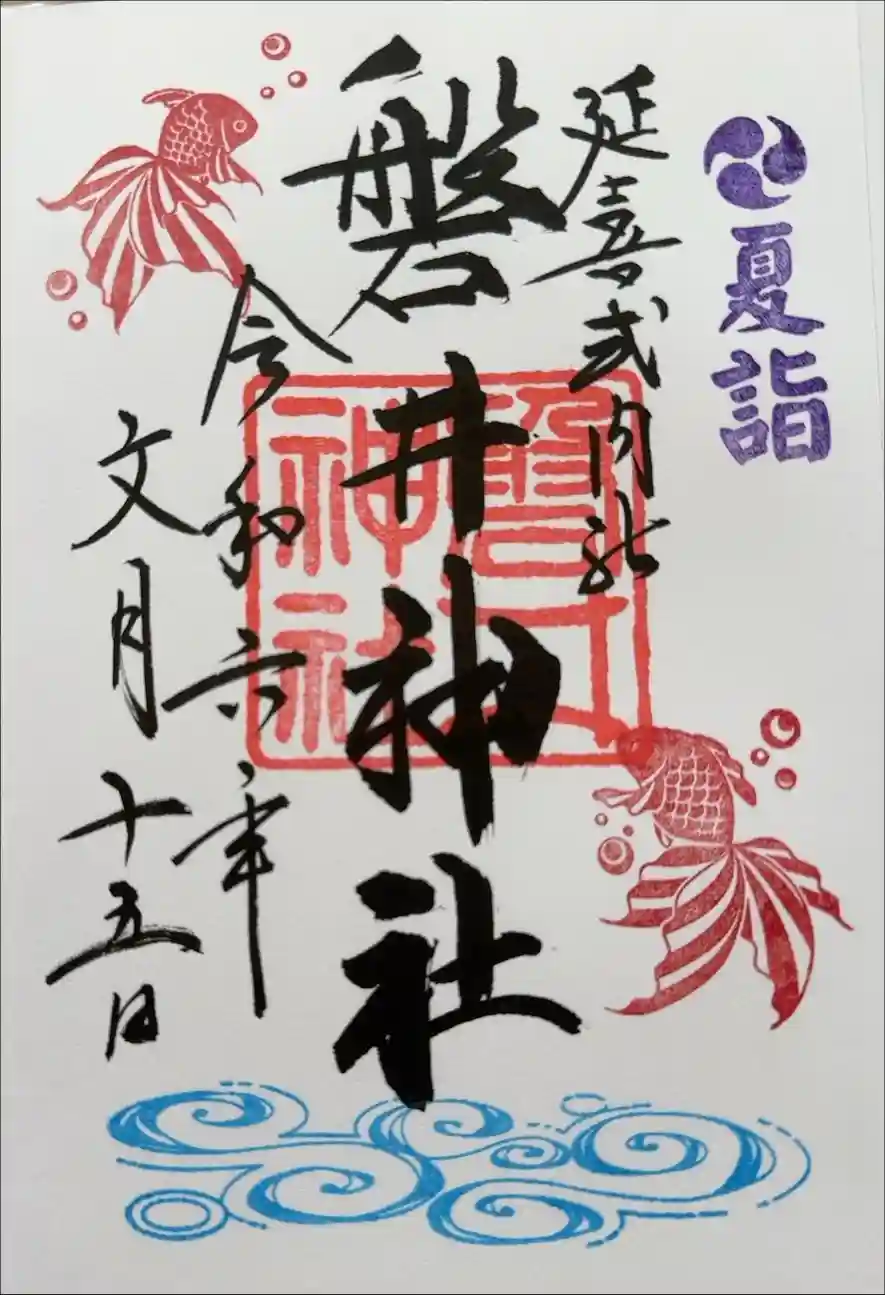 夏詣
延喜式内社
磐井神社
磐井
神社
令和六年
文月十五日